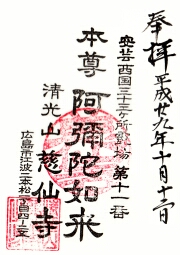 奉拝 平成廿九年十月十二日
安芸西国三十三ヶ所霊場 第十一番
本尊 阿彌陀如来
清光山 慈仙寺
広島市江波二本松